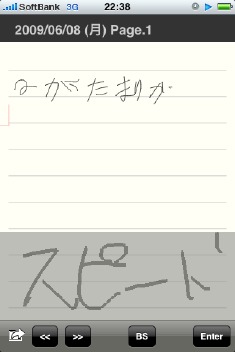 SoftBank 3G 22:38
2009/06/08 (月) Page.1
てがたまりか
スピード
<< >> BS Enter